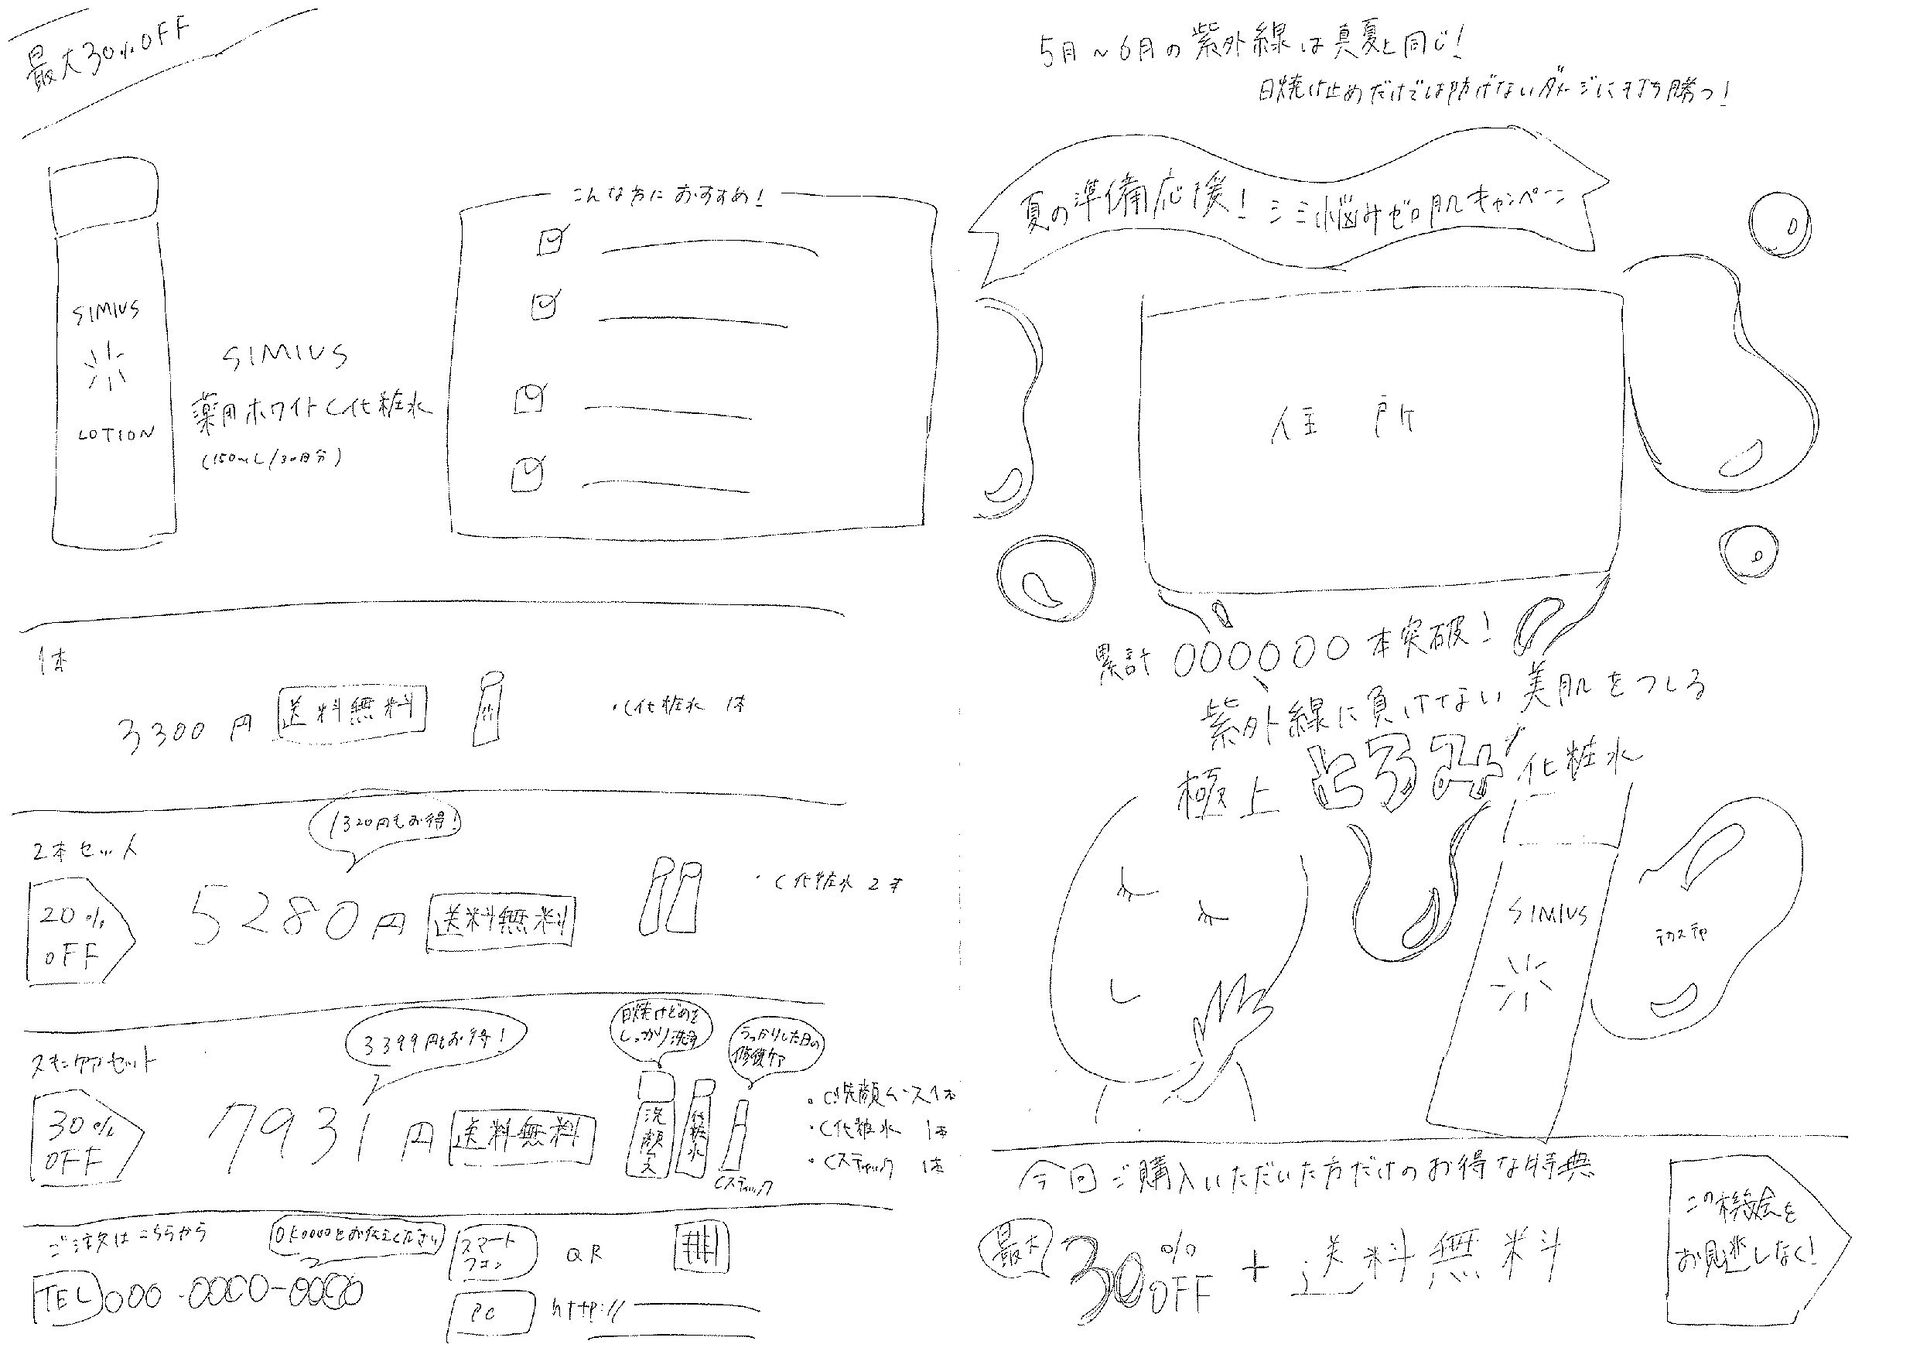 最大30%OFF
SIMIUS
LOTION
SIMIUS
薬用ホワイトC化粧水
(150mL/30日分)
こんな方におすすめ!
1本
3300円 送料無料
・C化粧水 1本
2本セット
1320円もお得!
20%
OFF
5280円 送料無料
・C化粧水 2本
スキンケアセット
3399円もお得!
30%
OFF
7931円 送料無料
日焼けどめを
しっかり洗浄
うっかりした日の
修復ケア
洗顔ムース
化粧水
Cスティック
・C洗顔ムース1本
・C化粧水 1本
・Cスティック 1本
ご注文はこちらから
TEL 000-0000-0000
スマート
フォン
QR
PC
http://
5月~6月の紫外線は真夏と同じ!
日焼け止めだけでは防げないダメージに打ち勝つ!
夏の準備応援!シミ悩みゼロ肌キャンペーン
住所
累計000000本突破!
紫外線に負けない美肌をつくる
極上とろみ化粧水
SIMIUS
テクスチャ
今回ご購入いただいた方だけのお得な特典
最大
30%OFF+送料無料
この機会を
お見逃しなく!